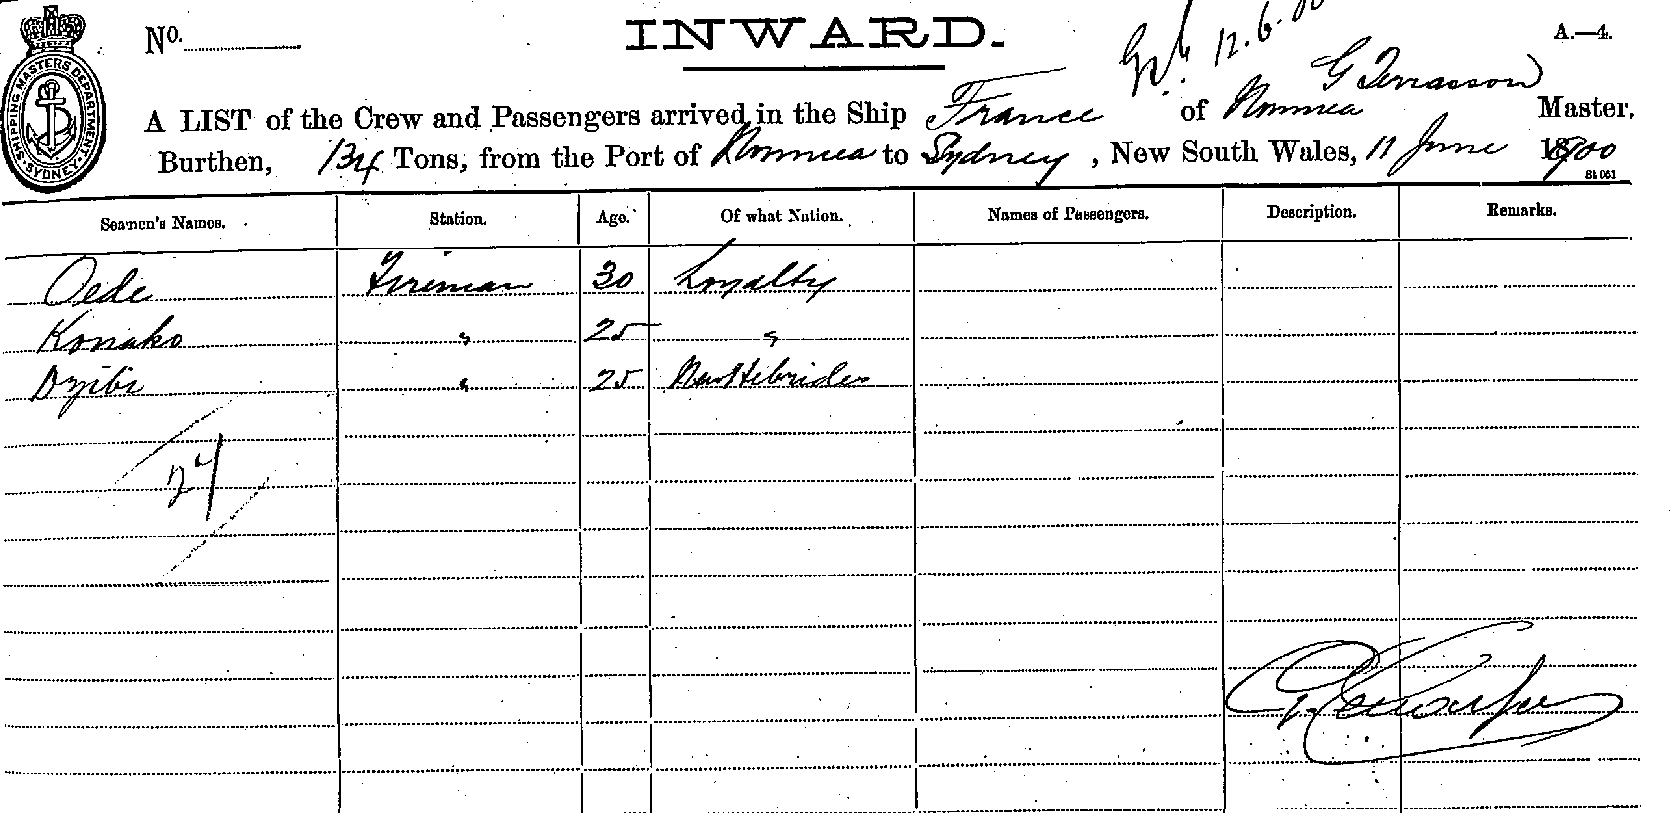 SHIPPING MASTERS DEPARTMENT SYDNEY
No.
INWARD.
12.6.00
A.—4.
G Terrasson
A LIST of the Crew and Passengers arrived in the Ship France of Noumea Master,
Burthen, 134 Tons, from the Port of Noumea to Sydney, New South Wales, 11 June 1900
Seamen's Names. Station. Age. Of what Nation. Names of Passengers. Description. Remarks.
Oede Fireman 30 Loyalty
Konako " 25 "
Dzibi " 25 New Hebrides
24